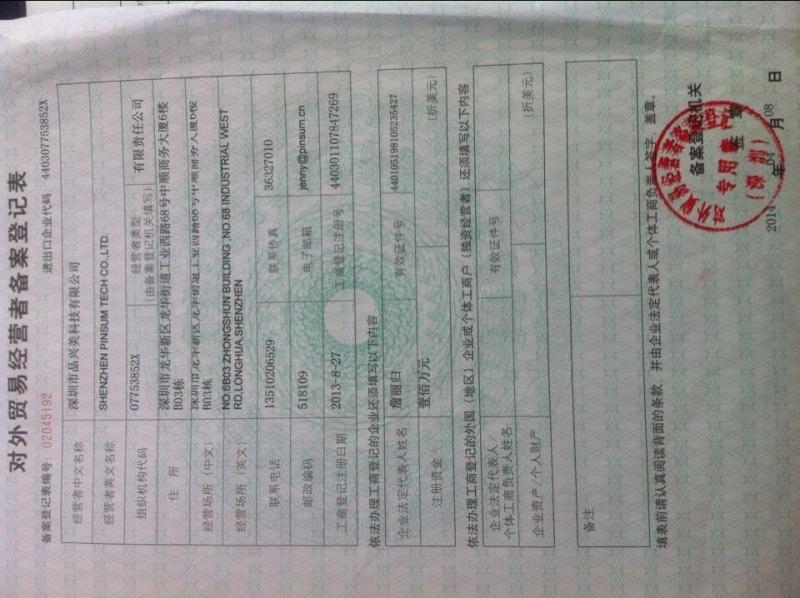 对外贸易经营者备案登记表
备案登记表编号: 02045192 进出口企业代码: 440307753852X
经营者中文名称 深圳市品兴美科技有限公司
经营者英文名称 SHENZHEN PINSUM TECH CO.,LTD.
组织机构代码 07753852X 经营者类型 (由备案登记机关填写) 有限责任公司
住 所 深圳市龙华新区龙华街道工业西路68号中顺商务大厦6楼
B03栋
经营场所(中文) 深圳市龙华新区龙华街道工业西路68号中顺商务大厦6楼
B03栋
经营场所(英文) NO.6B03 ZHONGSHUN BUILDING ,NO.68 INDUSTRIAL WEST
RD,LONGHUA,SHENZHEN
联系电话 13510206529 联系传真 36327010
邮政编码 518109 电子邮箱 jenny@pinsum.cn
工商登记注册日期 2013-8-27 工商登记注册号 440301107847269
依法办理工商登记的企业还须填写以下内容
企业法定代表人姓名 詹丽归 有效证件号 440105198106235427
注册资金 壹佰万元 (折美元)
依法办理工商登记的外国(地区)企业或个体工商户(独资经营者)还须填写以下内容
企业法定代表人
个体工商负责人姓名 有效证件号
企业资产/个人财产 (折美元)
备注
填表前请认真阅读背面的条款,并由企业法定代表人或个体工商负责人签字、盖章。
备案登记机关
签 章
专用章
(深圳)
2014 年 月 08 日